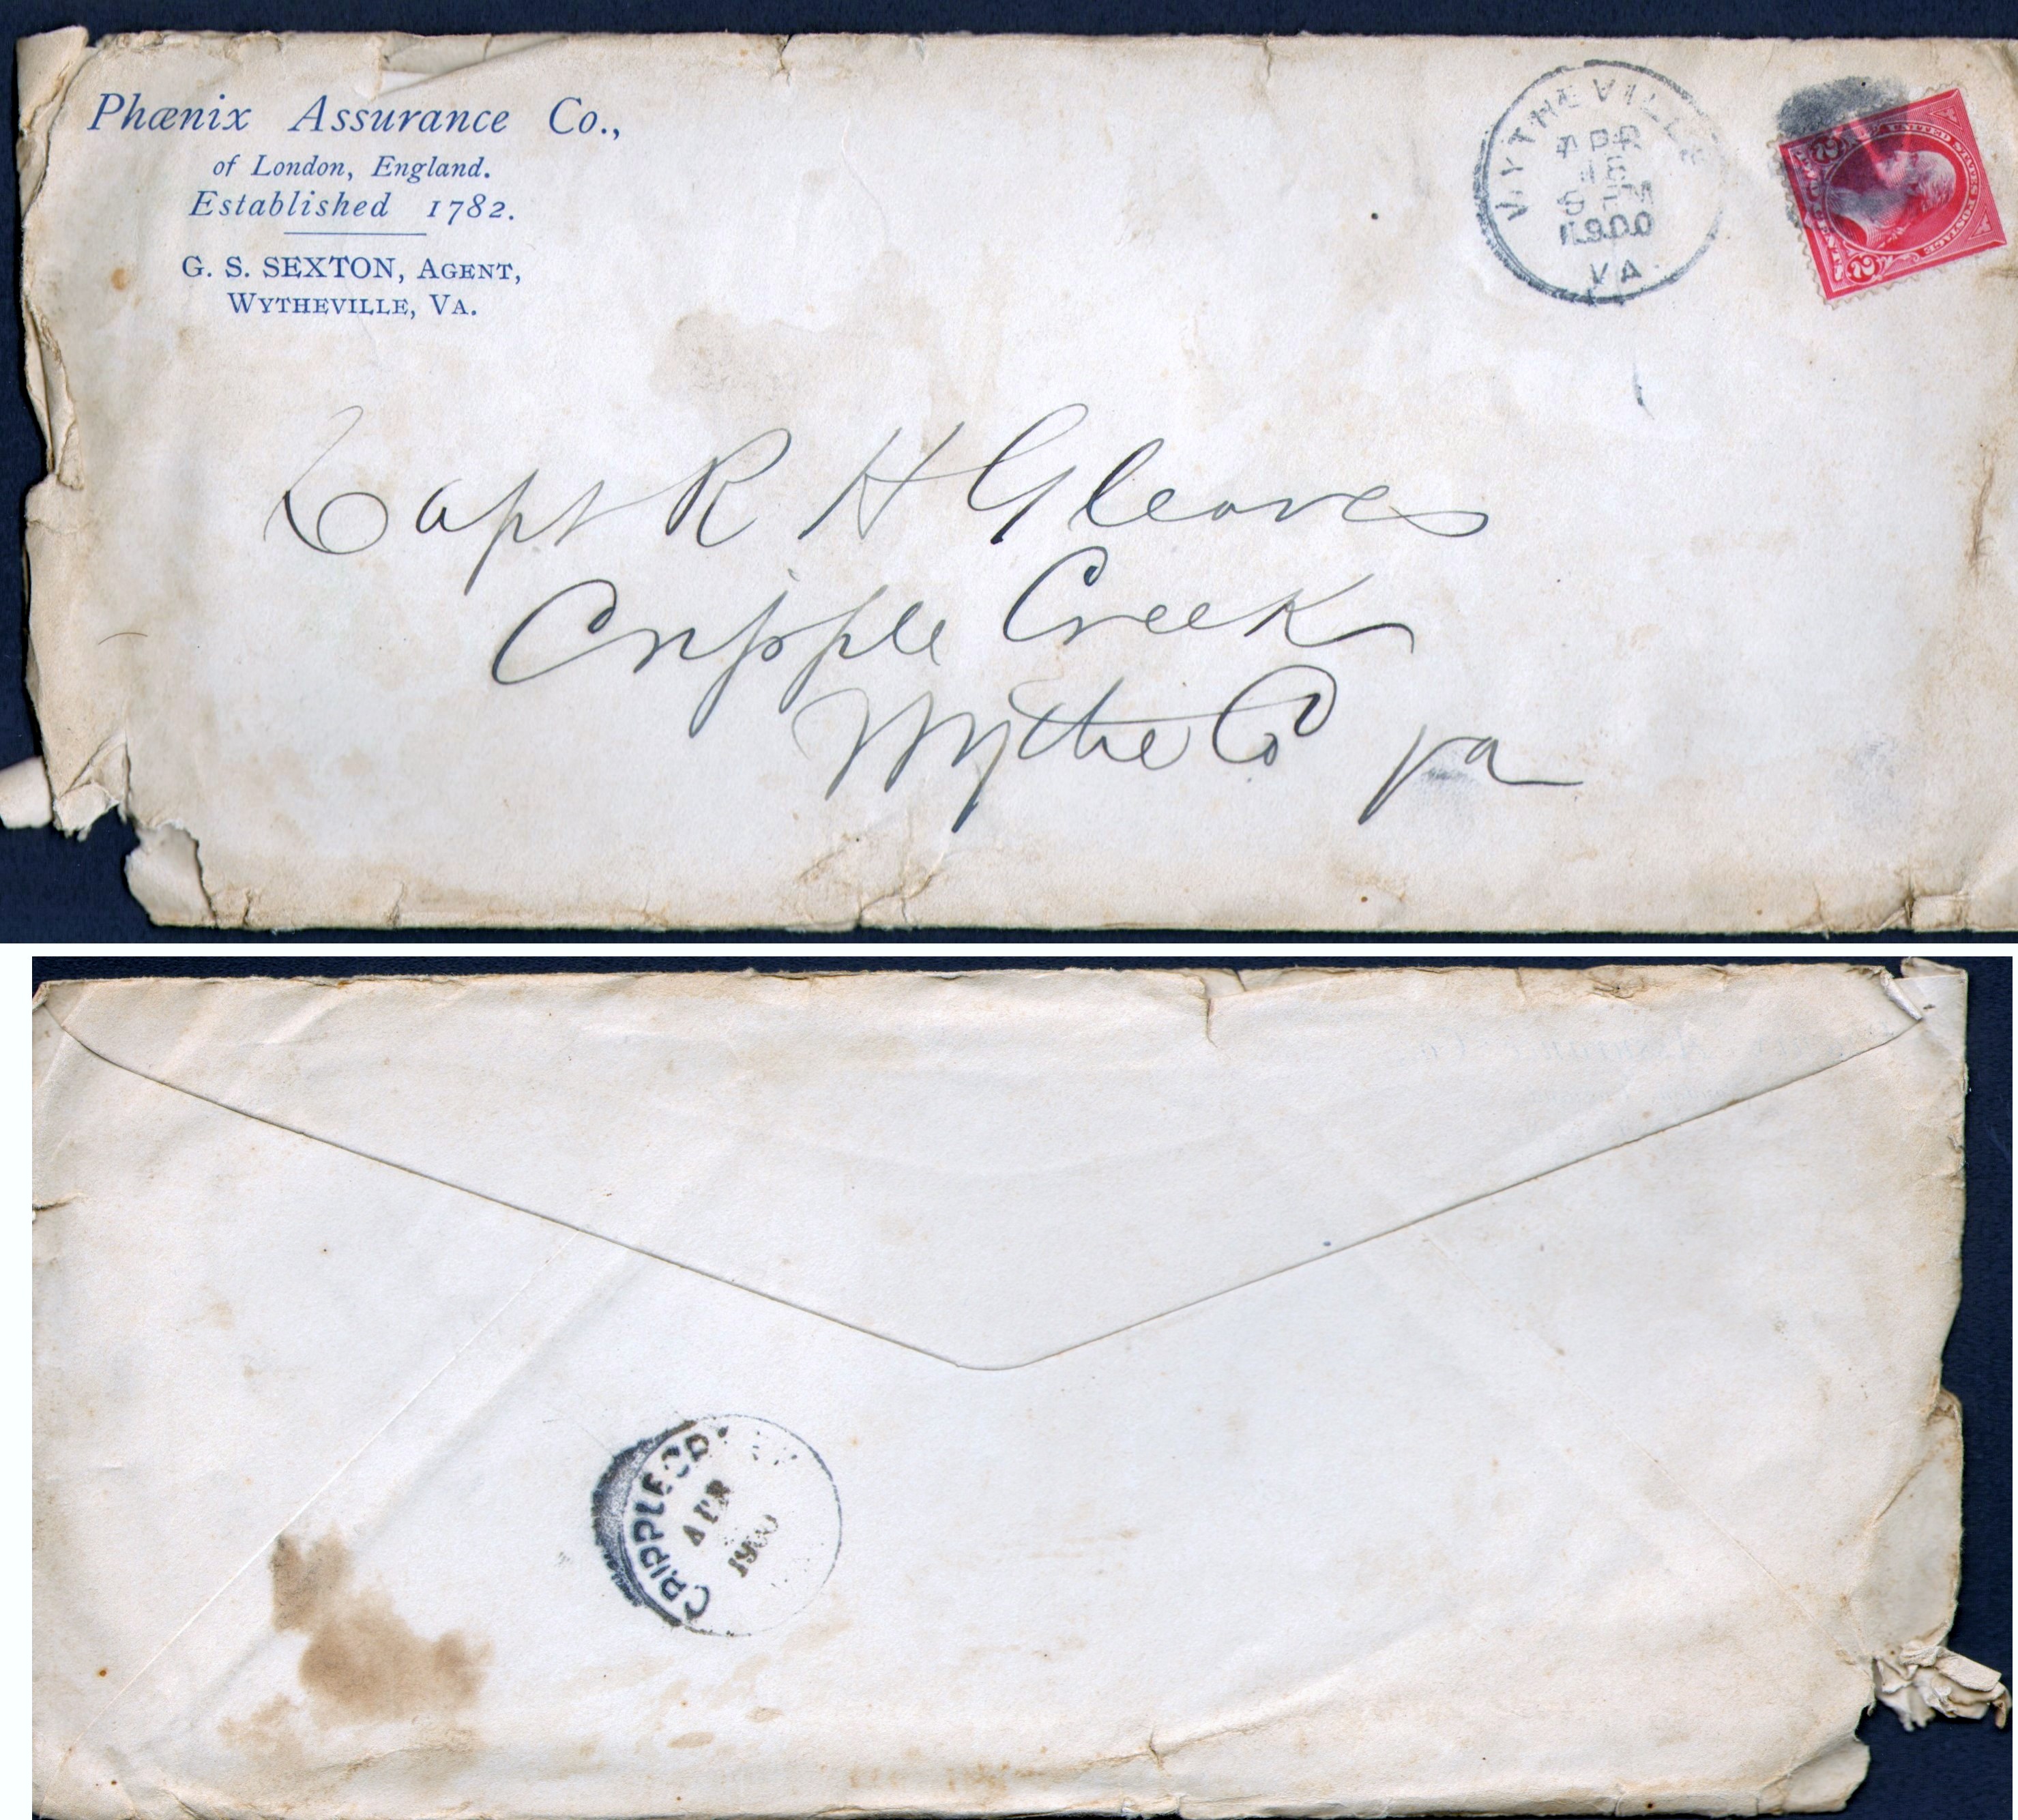 Phœnix Assurance Co.,
of London, England.
Established 1782.
G. S. SEXTON, AGENT,
WYTHEVILLE, VA.
WYTHEVILLE
APR
1900
VA.
UNITED STATES POSTAGE
2 2
Capt R H Gleaves
Cripple Creek
Wythe Co Va
CRIPPLE CR
APR
1900